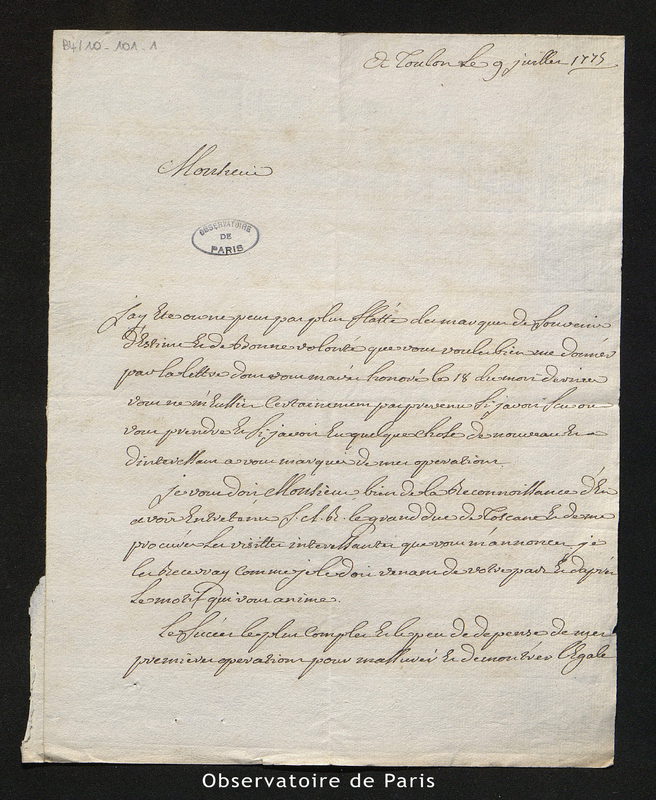 B4/10-101-1
A Toulon Le 9 juillet 1775
Monsieur
OBSERVATOIRE
DE
PARIS
j'ay Ete on ne peut pas plus flatté des marques de Souvenir
d'Estime Et de Bonne volonté que vous voulez bien me donner
par la lettre dont vous m'avez honoré le 18 du mois dernier
vous ne m'Eussiez Certainement pas prevenu Si j'avois Scu ou
vous prendre Et Si j'avois Eu quelque chose de nouveau Et
d'interessant a vous marquer de mes operations
je vous dois Monsieur bien de la Reconnoissance d'En
avoir Entretenu S. A. R. le grand duc de Toscane Et de me
procurer Les visittes interessantes que vous m'annoncez, je
les Recevray Comme je le dois venant de votre part Et d'après
Le motif qui vous anime.
Le Succès le plus Complet Et le peu de depense de mes
premieres operations pour m'assurer Et demontrer l'Egale
Observatoire de Paris